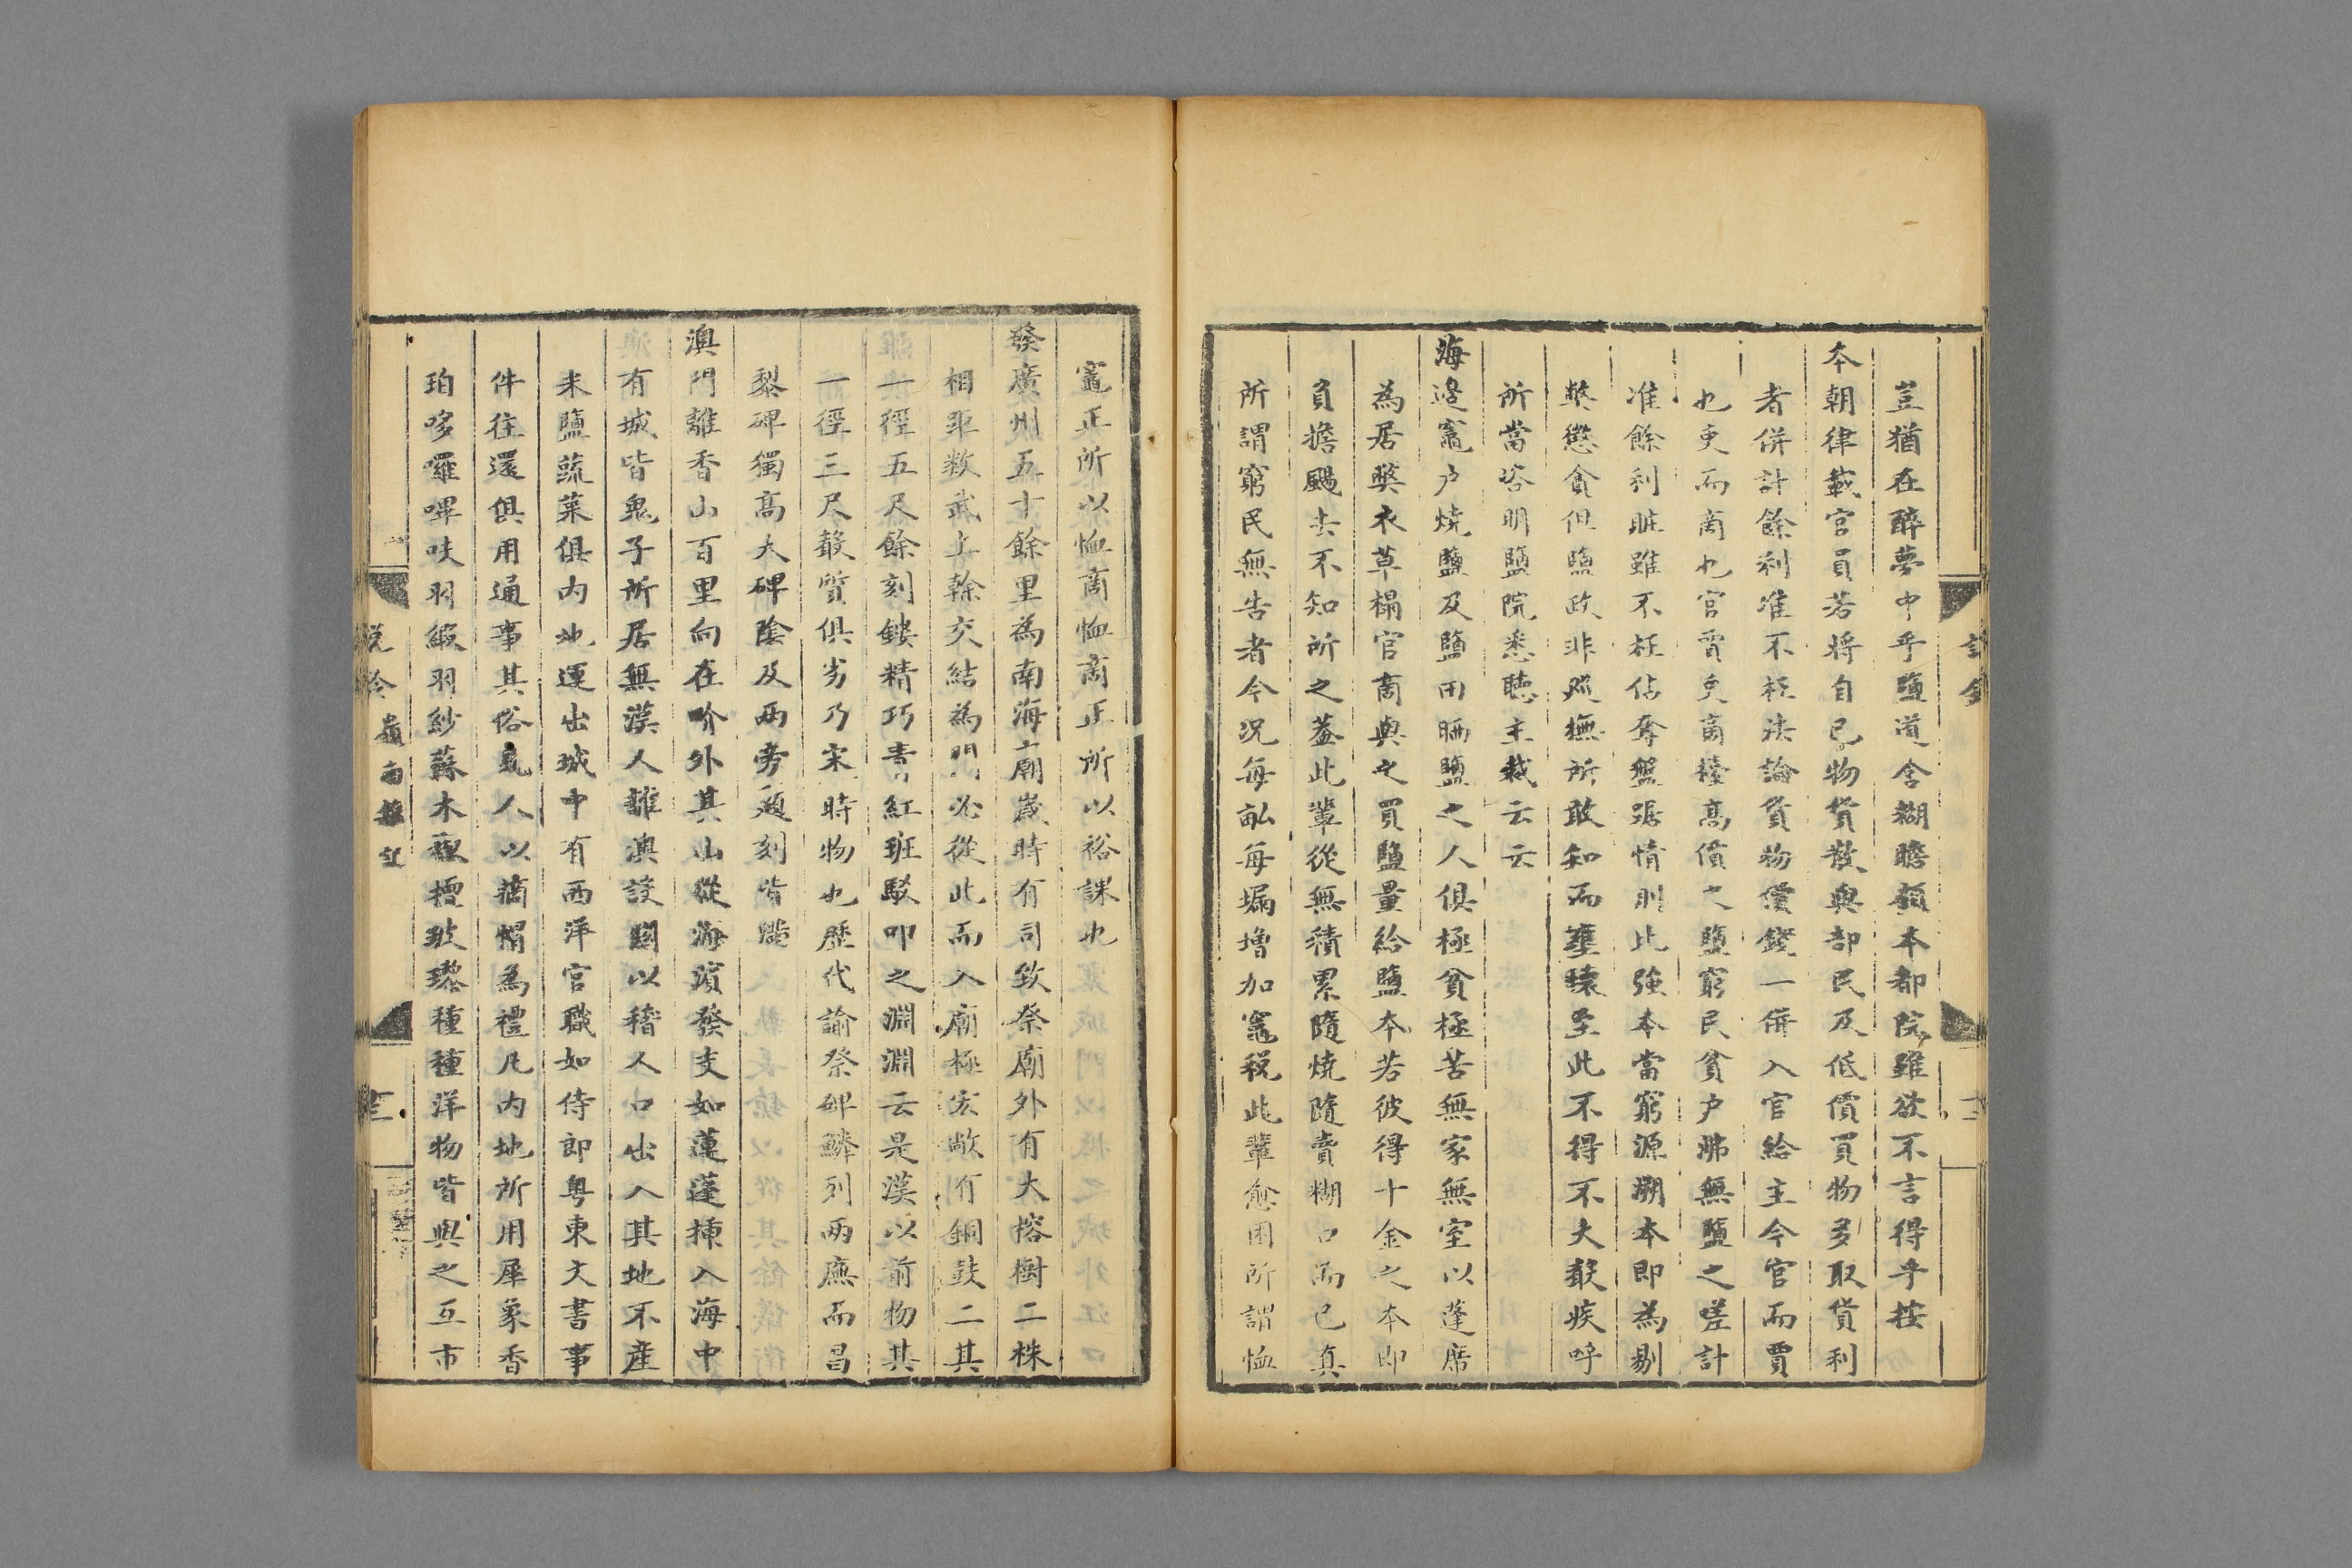 豈猶在醉夢中乎鹽道含糊瞻顧本都院雖欲不言得乎按
本朝律載官員若將自己物貨散與部民及低價買物多取貨利
者併計餘利准不枉法論貨物價錢一併入官給主今官而賈
也吏而商也官賈吏商擡高價之鹽窮民貧戶沸無鹽之嗟計
准餘利賍雖不枉佔奪盤踞情則比強本當窮源溯本即為剔
獘懲貪但鹽政非廵撫所敢知而壅驤至此不得不大敡疾呼
所當咨明鹽院悉聽主裁云云
海邊竈戶燒鹽及鹽田晒鹽之人俱極貧極苦無家無室以蓬席
為居獘衣草榻官商與之買鹽量給鹽本若彼得十金之本即
負擔颺去不知所之蓋此輩從無積累隨燒隨賣糊口而已真
所謂窮民無告者今況每畆每塥增加竈稅此輩愈困所謂恤
竈正所以恤商恤商正所以裕課也
發廣州五十餘里為南海廟歲時有司致祭廟外有大榕樹二株
相距数武上幹交結為門必從此而入廟極宏敞有銅鼓二其
一徑五尺餘刻鏤精巧青紅班駁叩之淵淵云是漢以前物其
一徑三尺敡質俱劣乃宋時物也歷代諭祭碑鱗列兩廡而昌
黎碑獨高大碑陰及兩旁題刻皆滿
澳門離香山百里向在界外其山從海濱發支如蓮蓬揷入海中
有城皆鬼子所居無漢人離澳設關以稽人口出入其地不產
米鹽蔬菜俱內地運出城中有西洋官職如侍郎粵東文書事
件往還俱用通事其俗見人以摘帽為禮凡內地所用犀象香
珀哆囉嗶吱羽緞羽紗蘇木檀玻瓈種種洋物皆與之互市
說鈴
嶺南雜記